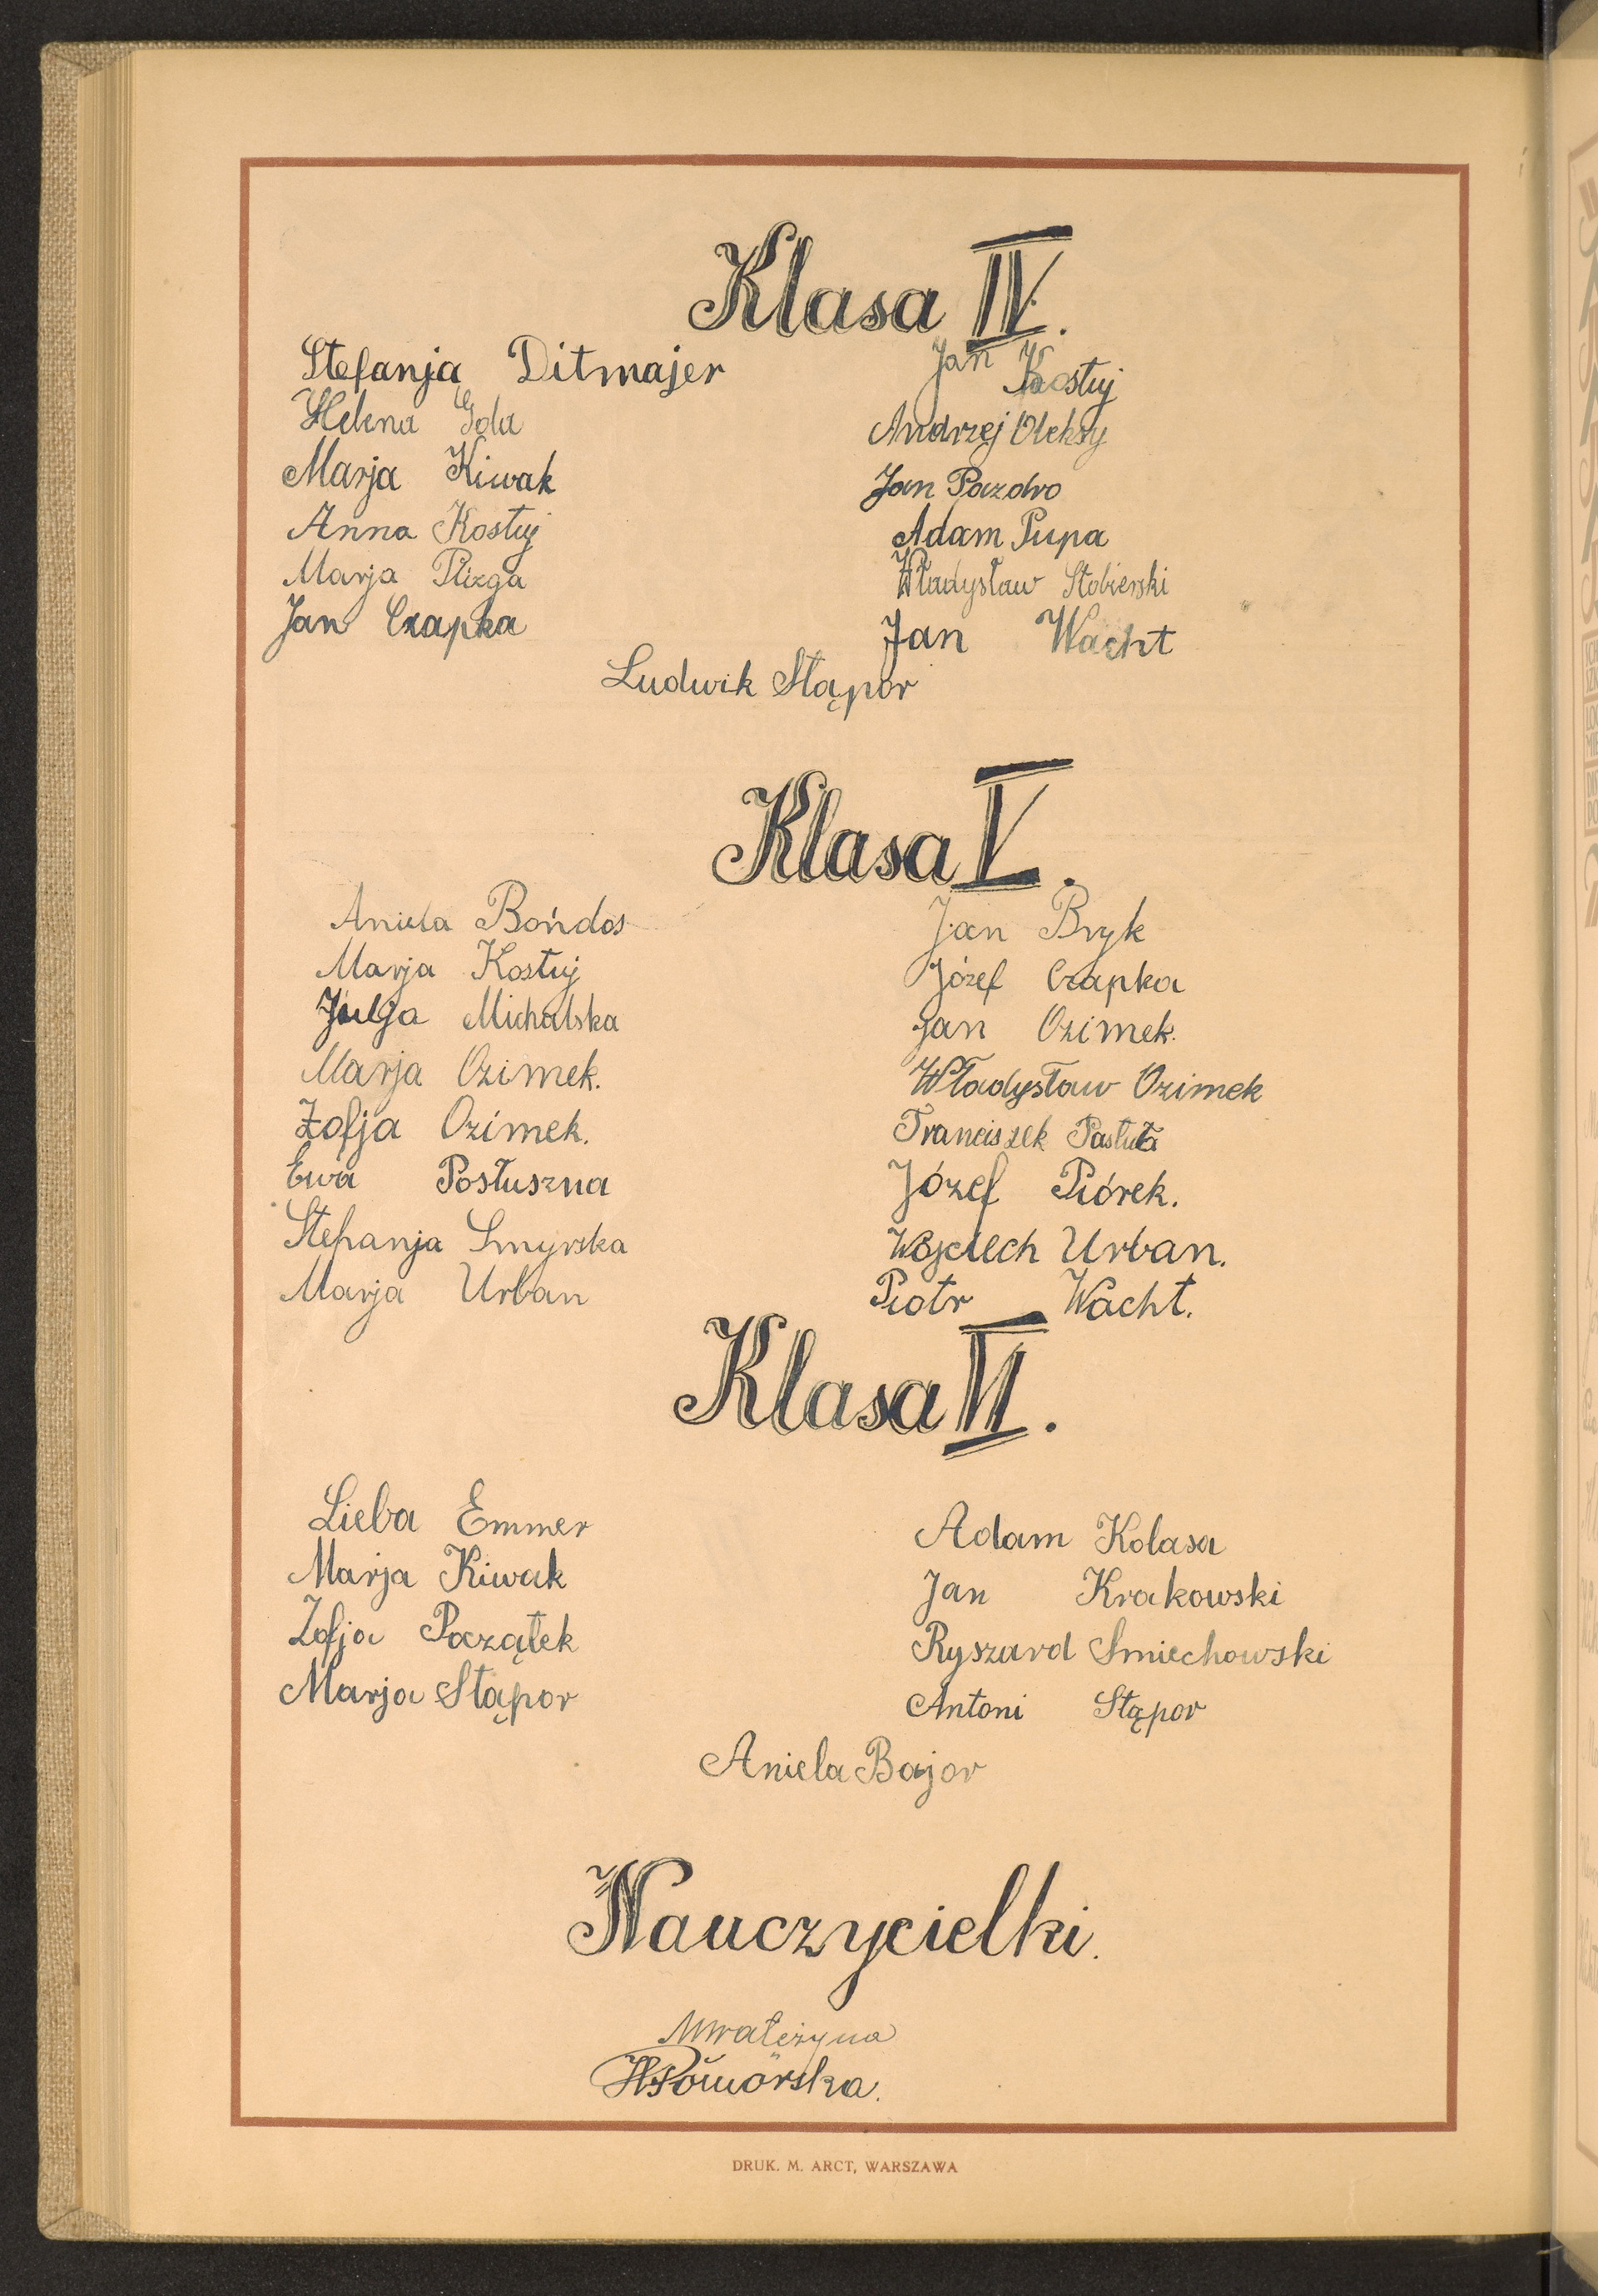 Klasa IV.
Stefanja Ditmajer
Helena Gola
Marja Kiwak
Anna Kostuj
Marja Plizga
Jan Czapka
Jan Kostuj
Andrzej Oleksy
Jan Pazdro
Adam Pupa
Władysław Stobierski
Jan Wacht
Ludwik Stąpor
Klasa V.
Aniela Bońdos
Marja Kostuj
Julja Michalska
Marja Ozimek.
Zofja Ozimek.
Ewa Posłuszna
Stefanja Smyrska
Marja Urban
Jan Bryk
Józef Czapka
Jan Ozimek.
Władysław Ozimek
Franciszek Pastuła
Józef Piórek.
Wojciech Urban.
Piotr Wacht.
Klasa VI.
Lieba Emmer
Marja Kiwak
Zofja Początek
Marja Stąpor
Adam Kolasa
Jan Krakowski
Ryszard Smiechowski
Antoni Stąpor
Aniela Bajor
Nauczycielki.
Pomorska.
DRUK. M. ARCT, WARSZAWA